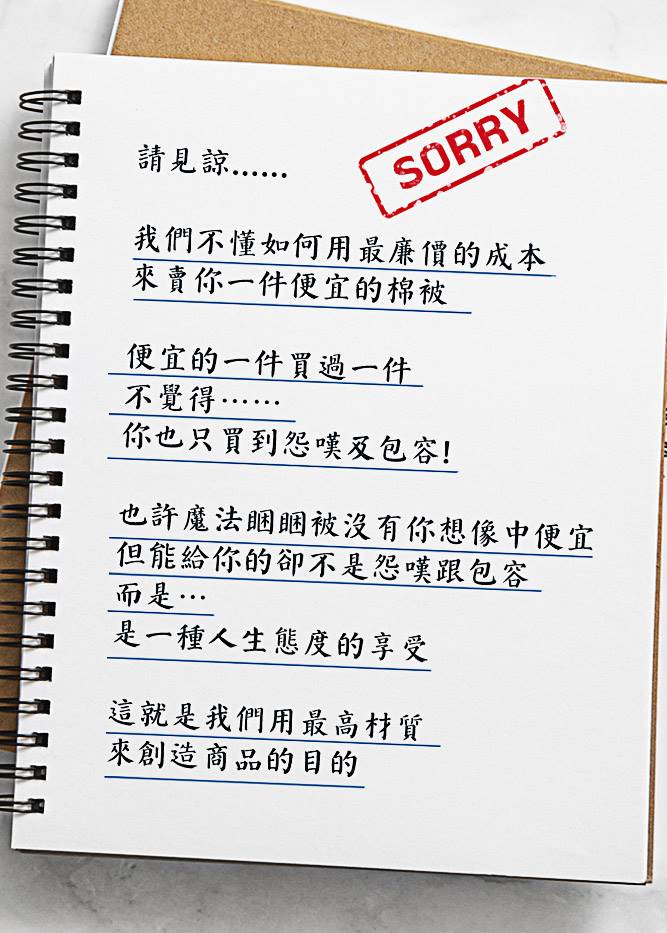 SORRY
請見諒......
我們不懂如何用最廉價的成本
來賣你一件便宜的棉被
便宜的一件買過一件
不覺得……
你也只買到怨嘆及包容!
也許魔法睏睏被沒有你想像中便宜
但能給你的卻不是怨嘆跟包容
而是…
是一種人生態度的享受
這就是我們用最高材質
來創造商品的目的